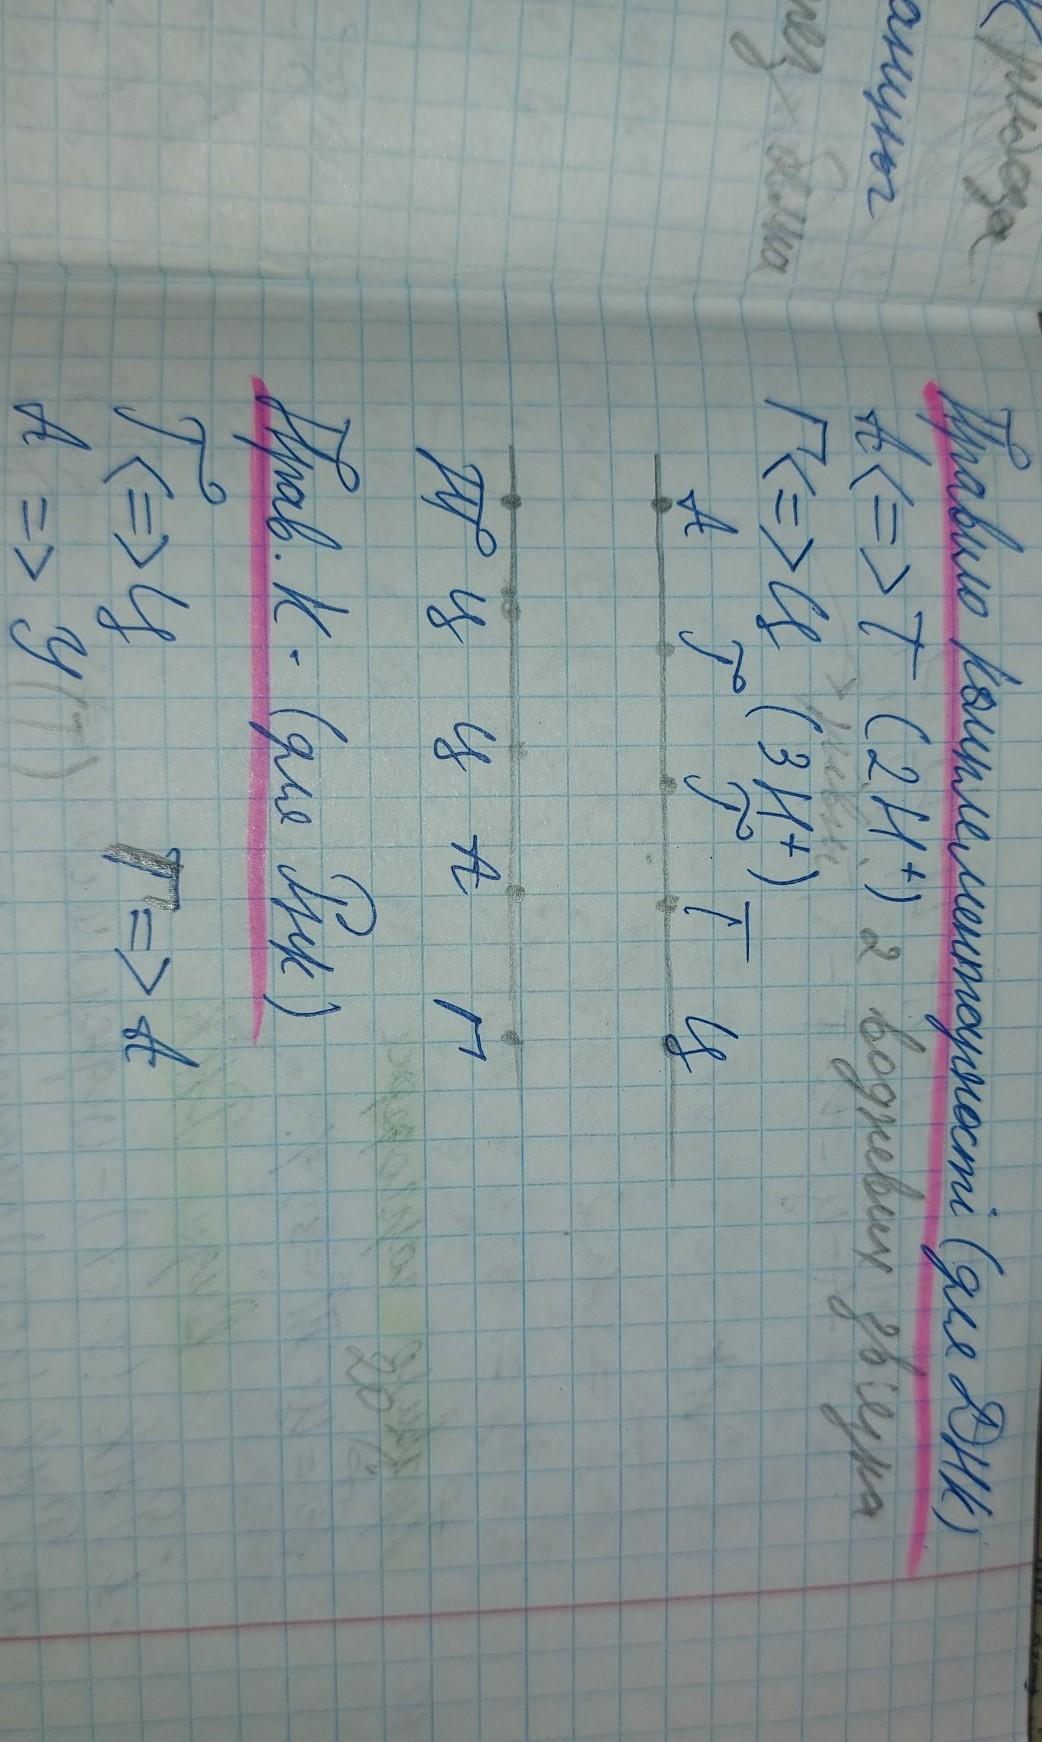 рибоза
анцюг
Правило комплементарності (для ДНК)
А <=> Т (2H⁺) 2 водневих зв'язка
Г <=> Ц (3H⁺)
А Г Г Т Ц
Т Ц Ц А Г
Прав. К. (для Рнк)
Г <=> Ц Т => А
А => У (Т)